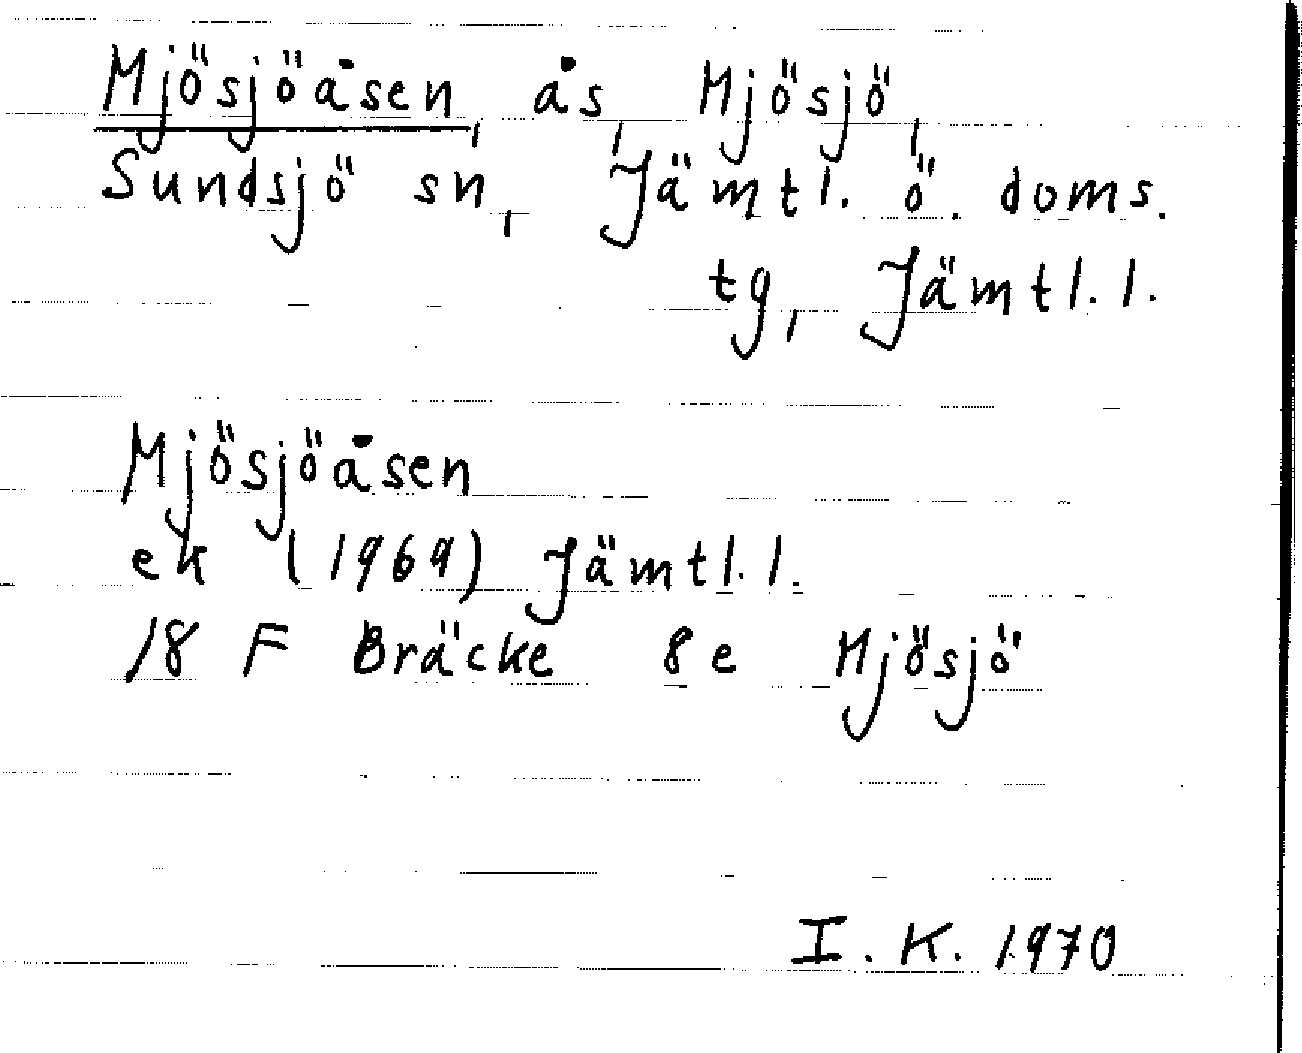 Mjösjöåsen, ås, Mjösjö,
Sundsjö sn, Jämtl. ö. doms.
tg, Jämtl. l.
Mjösjöåsen
ek (1969) Jämtl. l.
18 F Bräcke 8e Mjösjö
I. K. 1970